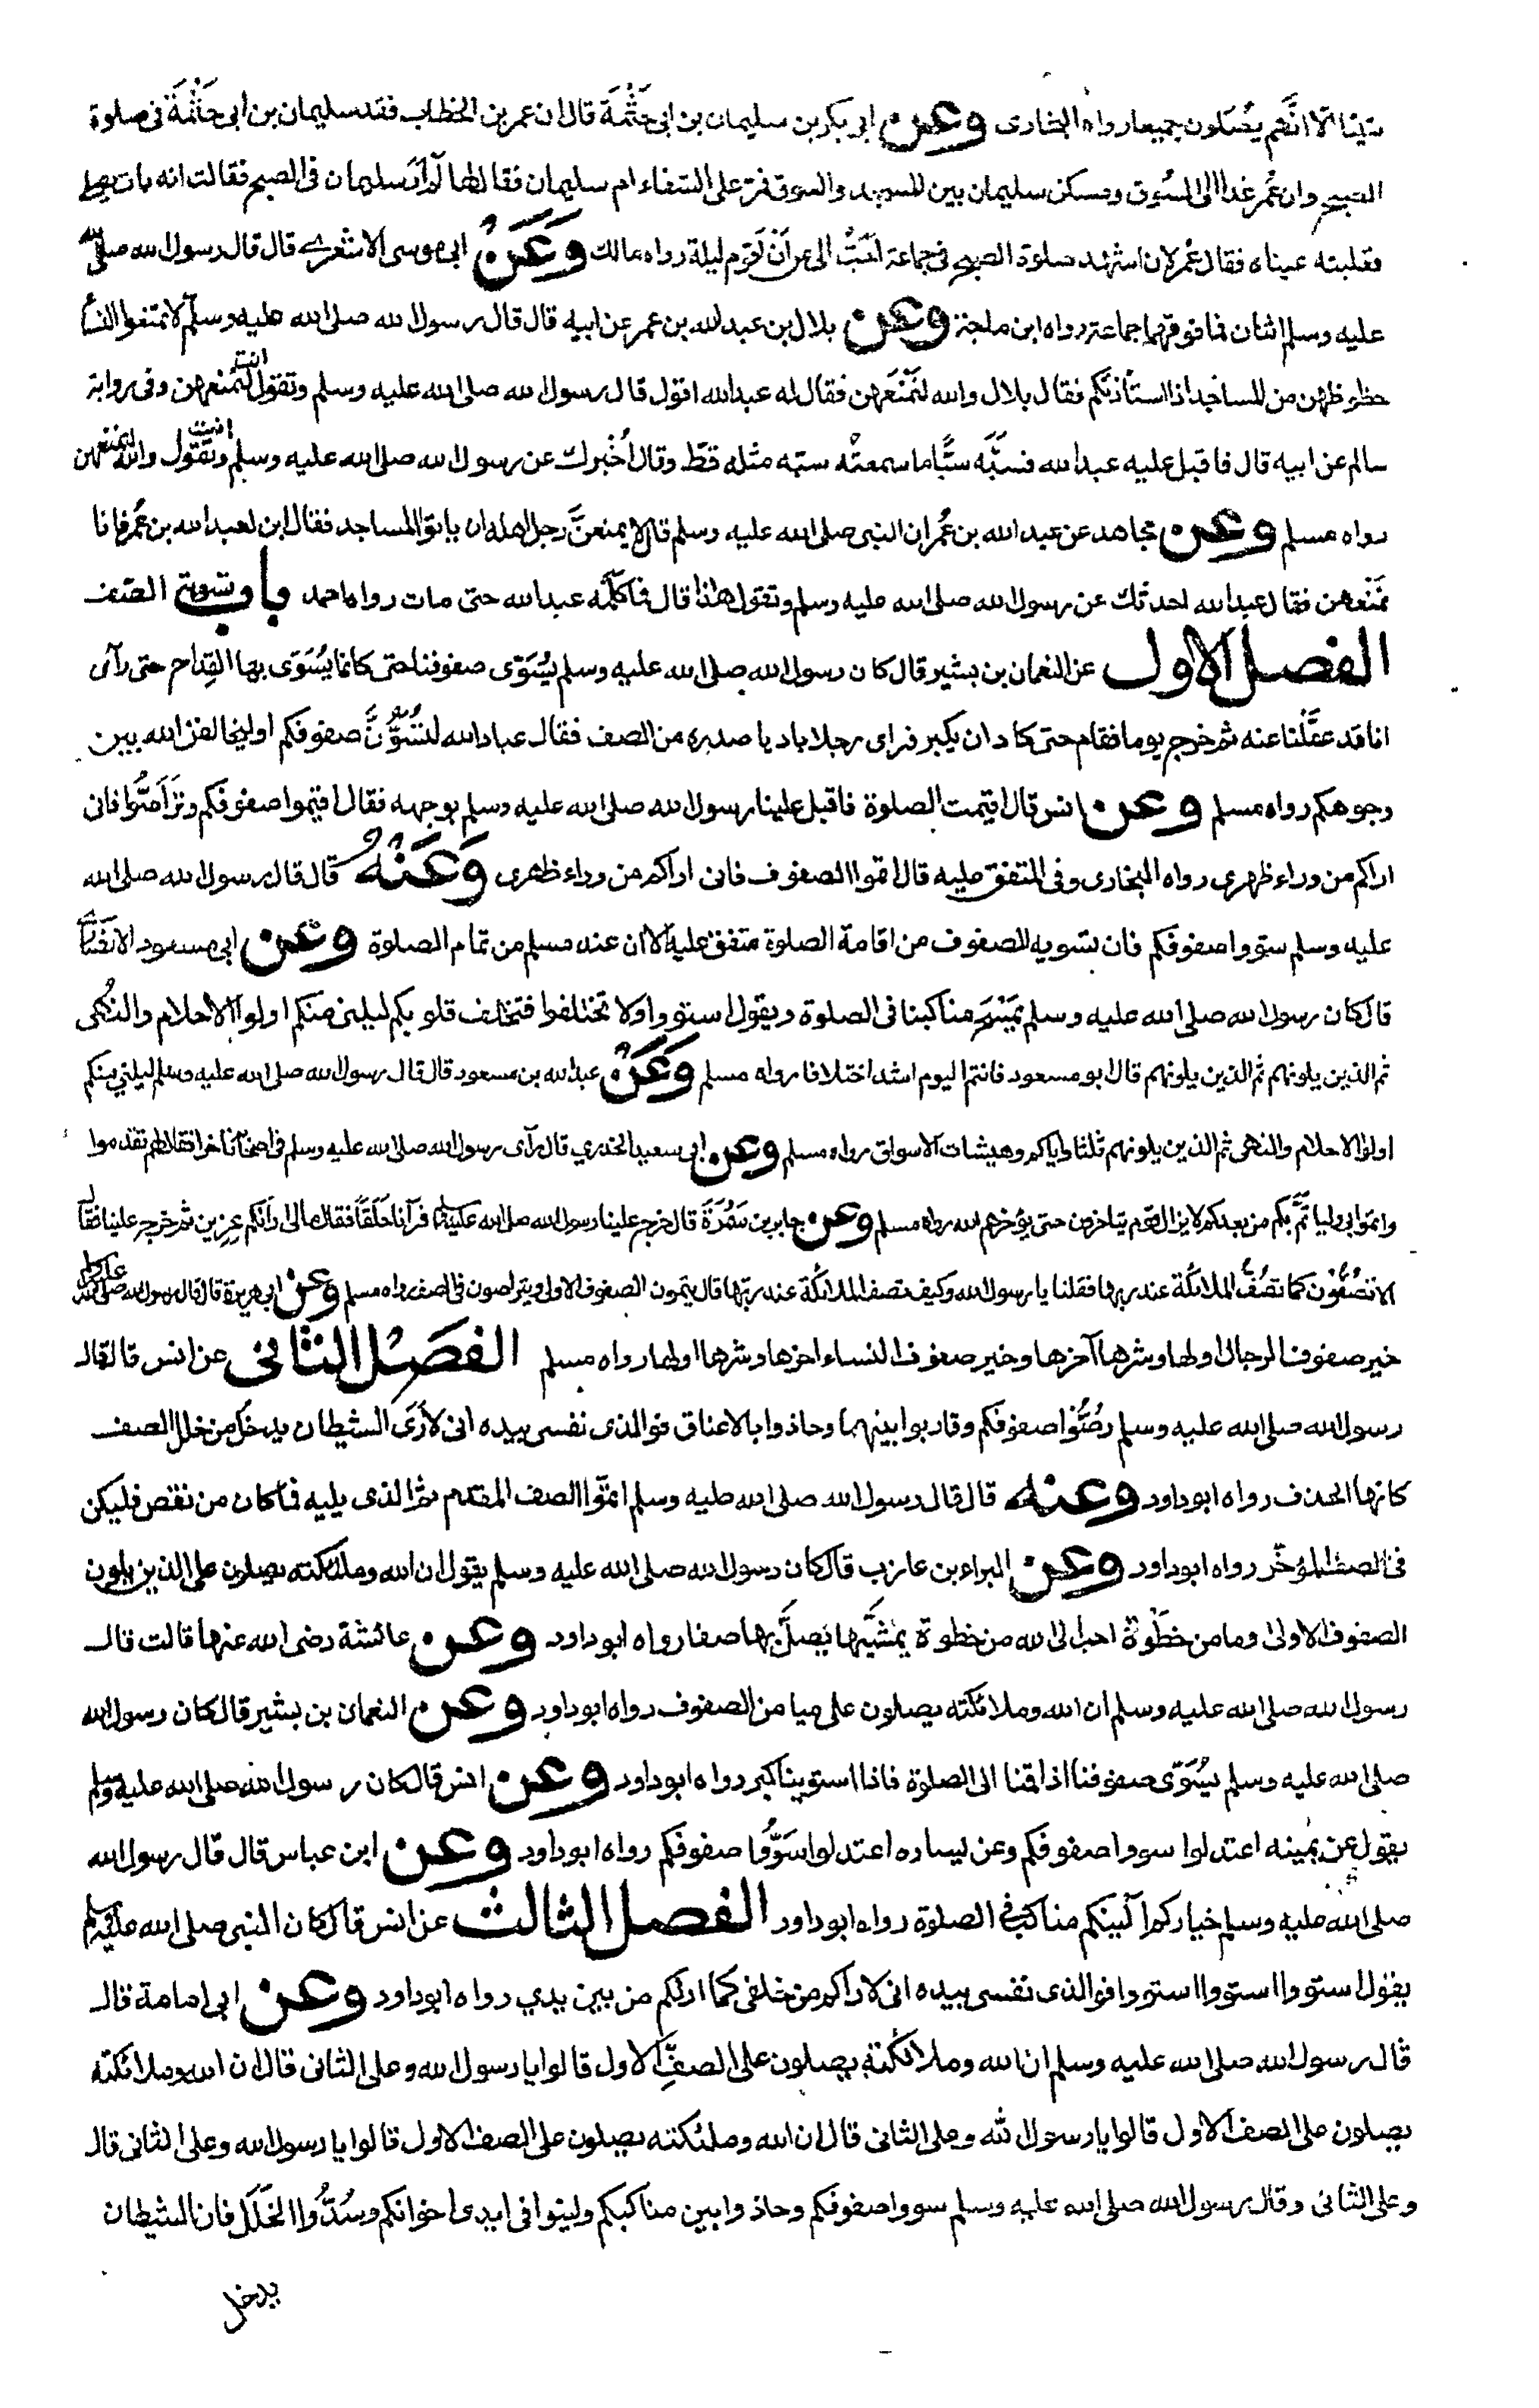 شيئا الا انهم يصلون جميعا رواه البخارى وعن ابى بكر بن سليمان بن ابى حَثْمَةَ قال ان عمر بن الخطاب فقد سليمان بن ابى حَثْمَةَ فى صلوة
الصبح وان عُمر غدا الى السُوق ومسكن سليمان بين المسجد والسوق فمر على الشفاء ام سليمان فقال لها لم ار سليمان فى الصبح فقالت انه بات يصلى
فغلبته عيناه فقال عُمر لان اشهد صلوة الصبح فى جماعة احَبُّ الى من ان اقوم ليلة رواه مالك وَعَنْ ابى موسى الاشعرى قال قال رسول الله صلى الله
عليه وسلم اثنان فما فوقهما جماعة رواه ابن ماجة وعن بلال بن عبد الله بن عمر عن ابيه قال قال رسول الله صلى الله عليه وسلم لا تمنعوا النساء
حظوظهن من المساجد اذا استأذنكم فقال بلال والله لنَمْنَعَهن فقال له عبد الله اقول قال رسول الله صلى الله عليه وسلم وتقول انت لنمنعهن وفى رواية
سالم عن ابيه قال فاقبل عليه عبد الله فسَبَّه سبًّا ما سمعتُه سبه مثله قط وقال اُخْبِرك عن رسول الله صلى الله عليه وسلم وتقول انت والله لنمنعهن
رواه مسلم وعن مجاهد عن عبد الله بن عُمر ان النبى صلى الله عليه وسلم قال لا يمنعنَّ رجل اهله ان ياتوا المساجد فقال ابن لعبد الله بن عُمر فانا
نمنعهن فقال عبد الله احدثك عن رسول الله صلى الله عليه وسلم وتقول هٰذا قال فما كلَّمه عبد الله حتى مات رواه احمد باب تسوية الصف
الفصل الاول عن النعمان بن بشير قال كان رسول الله صلى الله عليه وسلم يُسَوّى صفوفنا حتى كانما يُسَوّى بها القِداح حتى رآى
انا قد عقَلْنا عنه ثم خرج يوما فقام حتى كاد ان يكبر فراى رجلا باديا صدره من الصف فقال عباد الله لتُسَوُّنَّ صفوفكم او ليخالفن الله بين
وجوهكم رواه مسلم وعن انس قال اقيمت الصلوة فاقبل علينا رسول الله صلى الله عليه وسلم بوجهه فقال اقيموا صفوفكم وتَرَاصُّوا فانى
اراكم من وراء ظهرى رواه البخارى وفى المتفق عليه قال اتموا الصفوف فانى اراكم من وراء ظهرى وَعَنْهُ قال قال رسول الله صلى الله
عليه وسلم سووا صفوفكم فان تسوية الصفوف من اقامة الصلوة متفق عليه الا ان عند مسلم من تمام الصلوة وعن ابى مسعود الانصارى
قال كان رسول الله صلى الله عليه وسلم يَمْسَحُ مناكبنا فى الصلوة ويقول استووا ولا تختلفوا فتختلف قلوبكم ليلينى منكم اولوا الاحلام والنُهى
ثم الذين يلونهم ثم الذين يلونهم قال ابو مسعود فانتم اليوم اشد اختلافا رواه مسلم وَعَنْ عبد الله بن مسعود قال قال رسول الله صلى الله عليه وسلم ليلنى منكم
اولوا الاحلام والنهى ثم الذين يلونهم ثلثا واياكم وهيشات الاسواق رواه مسلم وعن ابى سعيد الخدرى قال رآى رسول الله صلى الله عليه وسلم فى اصحابه تأخرا فقال لهم تقدموا
واتموا بى وليأتمَّ بكم من بعدكم لا يزال قوم يتاخرون حتى يؤخرهم الله رواه مسلم وعن جابر بن سَمُرَةَ قال خرج علينا رسول الله صلى الله عليه وسلم فرآنا حِلَقًا فقال مالى اراكم عِزِين ثم خرج علينا فقال
الا تصُفُّون كما تصُفُّ الملائكة عند ربها فقلنا يا رسول الله وكيف تصف الملائكة عند ربها قال يتمون الصفوف الاولى ويتراصون فى الصف رواه مسلم وعن ابى هريرة قال قال رسول الله صلى الله عليه وسلم
خير صفوف الرجال اولها وشرها آخرها وخير صفوف النساء اخرها وشرها اولها رواه مسلم الفصل الثانى عن انس قال قال
رسول الله صلى الله عليه وسلم رُصُّوا صفوفكم وقاربوا بينهما وحاذوا بالاعناق فوالذى نفسى بيده انى لاَرَى الشيطان يدخل من خلل الصف
كانها الحذف رواه ابو داود وعنه قال قال رسول الله صلى الله عليه وسلم اتموا الصف المقدم ثم الذى يليه فما كان من نقص فليكن
فى الصف المؤخر رواه ابو داود وعن البراء بن عازب قال كان رسول الله صلى الله عليه وسلم يقول ان الله وملٰئكته يصلون على الذين يلون
الصفوف الاولى وما من خطْوة احب الى الله من خطوة يمشيها يَصِلُ بها صفا رواه ابو داود وعن عائشة رضى الله عنها قالت قال
رسول الله صلى الله عليه وسلم ان الله وملائكته يصلون على ميامن الصفوف رواه ابو داود وعن النعمان بن بشير قال كان رسول الله
صلى الله عليه وسلم يُسَوّى صفوفنا اذا قمنا الى الصلوة فاذا استوينا كبر رواه ابو داود وعن انس قال كان رسول الله صلى الله عليه وسلم
يقول عن يمينه اعتدلوا سووا صفوفكم وعن يساره اعتدلوا سَوُّوا صفوفكم رواه ابو داود وعن ابن عباس قال قال رسول الله
صلى الله عليه وسلم خياركم اَلْيَنكم مناكب فى الصلوة رواه ابو داود الفصل الثالث عن انس قال كان النبى صلى الله عليه وسلم
يقول استووا استووا استووا فوالذى نفسى بيده انى لاراكم من خلفى كما اراكم من بين يدى رواه ابو داود وعن ابى امامة قال
قال رسول الله صلى الله عليه وسلم ان الله وملائكته يصلون على الصفِّ الاول قالوا يا رسول الله وعلى الثانى قال ان الله وملائكته
يصلون على الصف الاول قالوا يا رسول الله وعلى الثانى قال ان الله وملئكته يصلون على الصف الاول قالوا يا رسول الله وعلى الثانى قال
وعلى الثانى وقال رسول الله صلى الله عليه وسلم سووا صفوفكم وحاذوا بين مناكبكم ولينوا فى ايدى اخوانكم وسُدُّوا الخَلَلَ فان الشيطان
يدخل